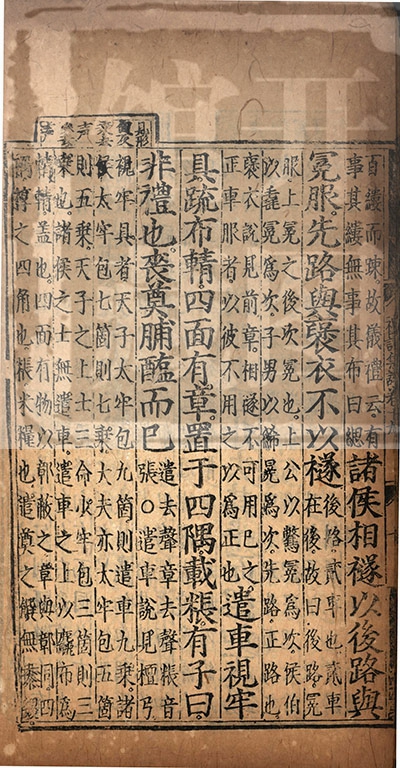 百縷而疎故儀禮云有
事其縷無事其布曰緦
諸侯相襚以後路與
冕服先路與襃衣不以襚
後路貳車也貳車
在後故曰後路冕
服上冕之後次冕也上公以鷩冕爲次侯伯
以毳冕爲次子男以絺冕爲次先路正路也
襃衣說見前章相襚不可用己之
正車服者以彼不用之以爲正也
遣車視牢
具疏布輤四面有章置于四隅載粻有子曰
非禮也喪奠脯醢而已
遣去聲章去聲粻音
張○遣車說見檀弓
視牢具者天子太牢包九箇則遣車九乗諸
侯太牢包七箇則七乗大夫亦太牢包五箇
則五乗天子之上士三命少牢包三箇則三
乗也諸侯之士無遣車遣車之上以麤布爲
輤輤蓋也四面有物以鄣蔽之章與鄣同四
隅椁之四角也粻米糧也遣奠之饌無黍稷